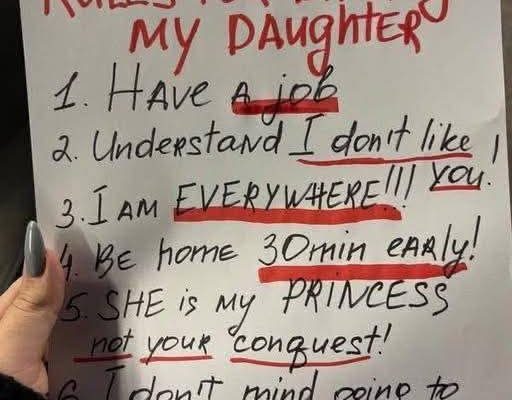 MY DAUGHTER
1. HAVE A job
2. Understand I don't like
YOU!
3. I AM EVERYWHERE!!!
4. BE home 30min EARLY!
5. SHE is my PRINCESS
not your conquest!
6. I don't mind going to